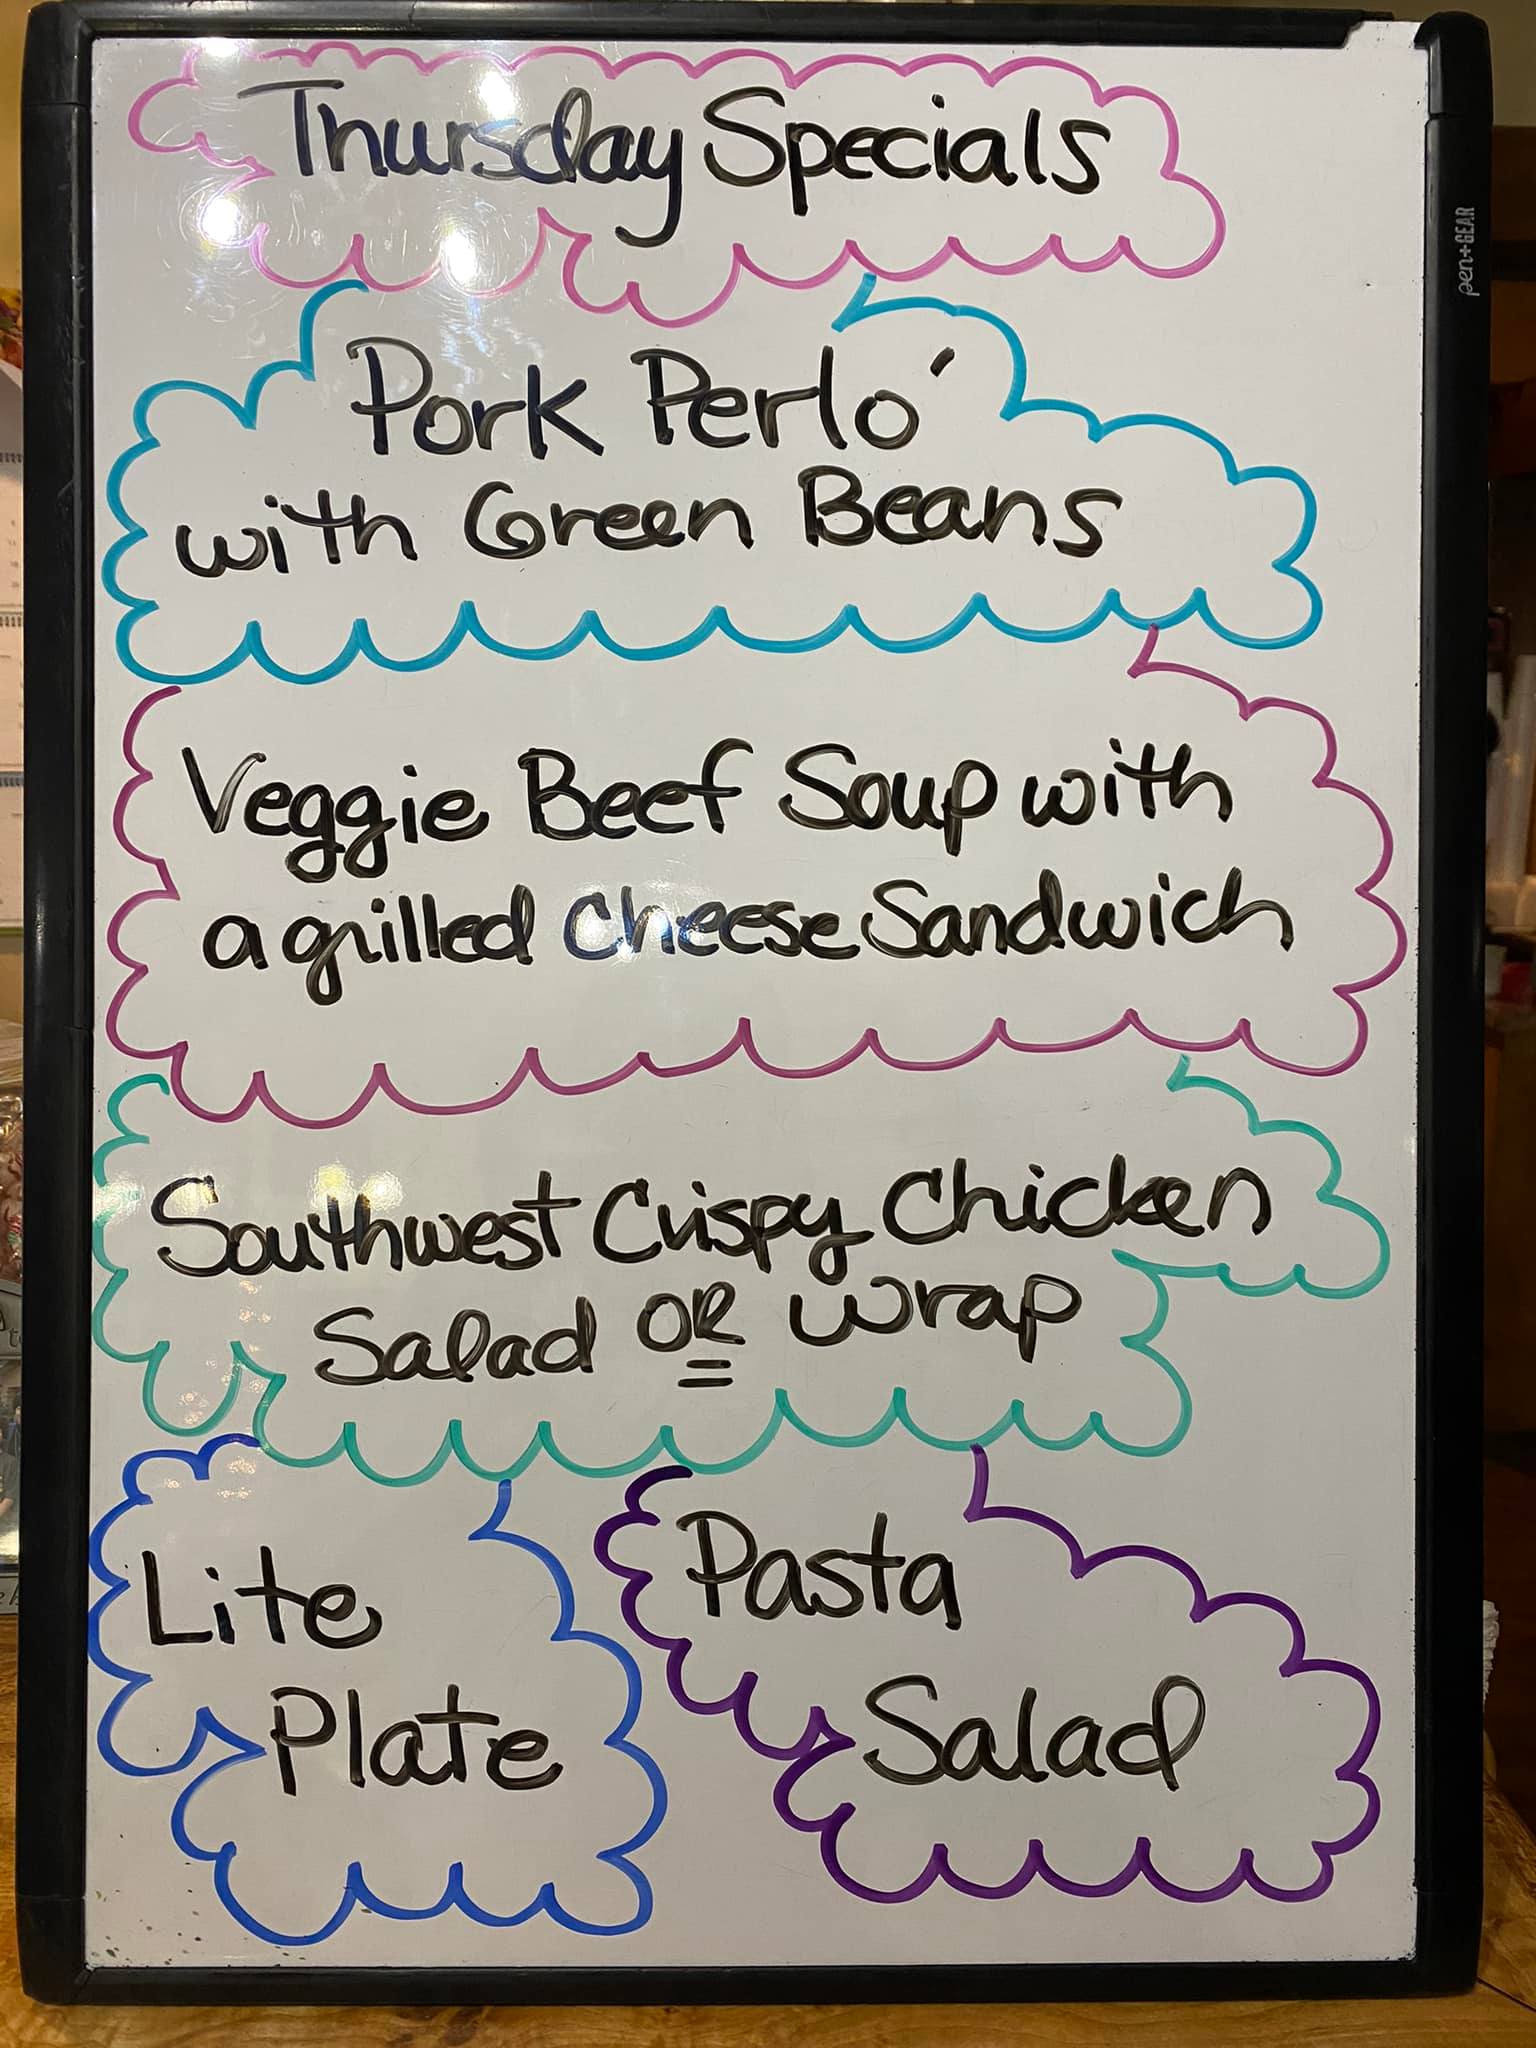 Thursday Specials
Pork Perlo'
with Green Beans
Veggie Beef Soup with
a grilled Cheese Sandwich
Southwest Crispy Chicken
Salad OR wrap
Lite
Plate
Pasta
Salad
pen+GEAR